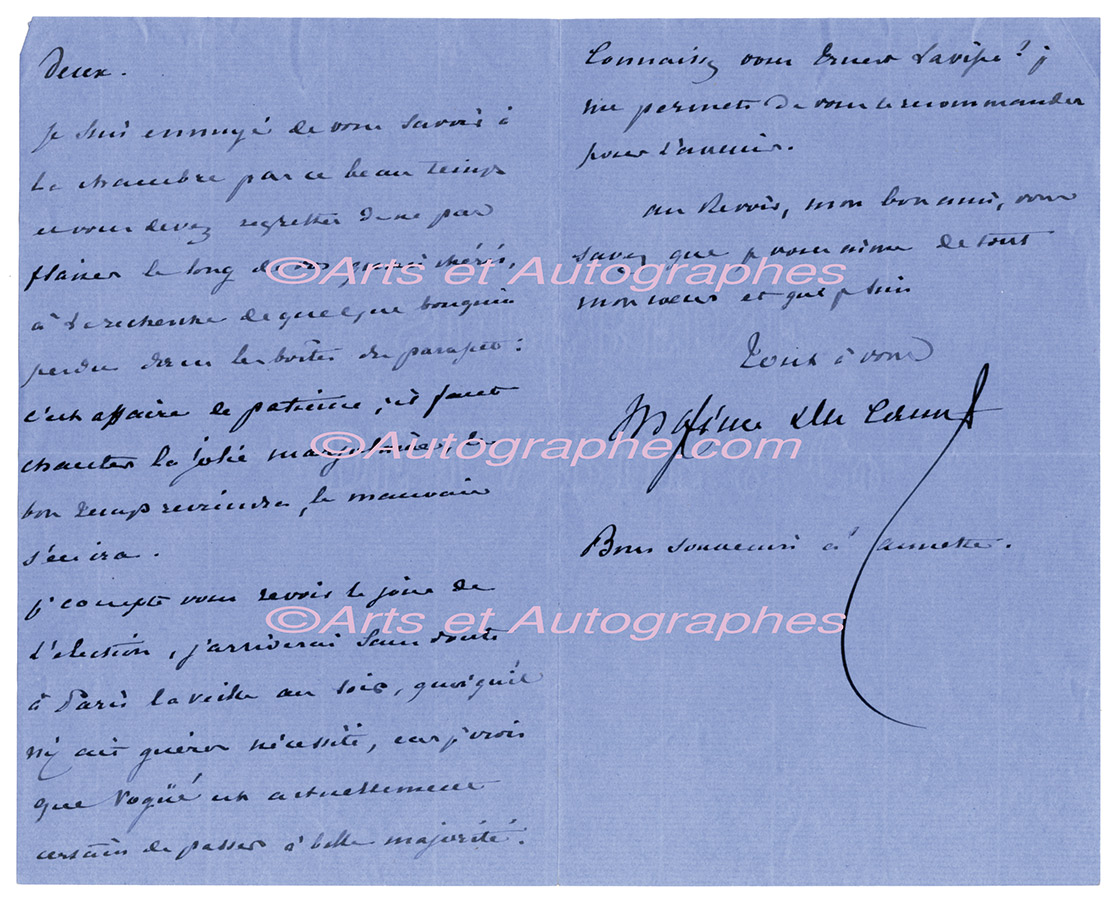 deux.
je suis ennuyé de vous savoir à
la chambre par ce beau temps
et vous devez regretter de ne pas
flaner le long de vos quais chéris,
à la recherche de quelque bouquin
perdu dans les boîtes des parapets :
c'est affaire de patience ; il faut
chanter la jolie marjolaine, le
bon temps reviendra, le mauvais
s'en ira.
je compte vous revoir le jour de
l'élection, j'arriverai sans doute
à Paris la veille au soir, quoiqu'il
n'y ait guères nécessité, car je crois
que Vogüé est actuellement
certain de passer à belle majorité.
Connaissez vous Ernest Lavisse ? je
me permets de vous le recommander
pour l'avenir.
au Revoir, mon bon ami, vous
savez que je vous aime de tout
mon cœur et que je suis
Tout à vous
Maxime Du Camp
Bons souvenirs à Jannette.
©Arts et Autographes
©Autographe.com
©Arts et Autographes